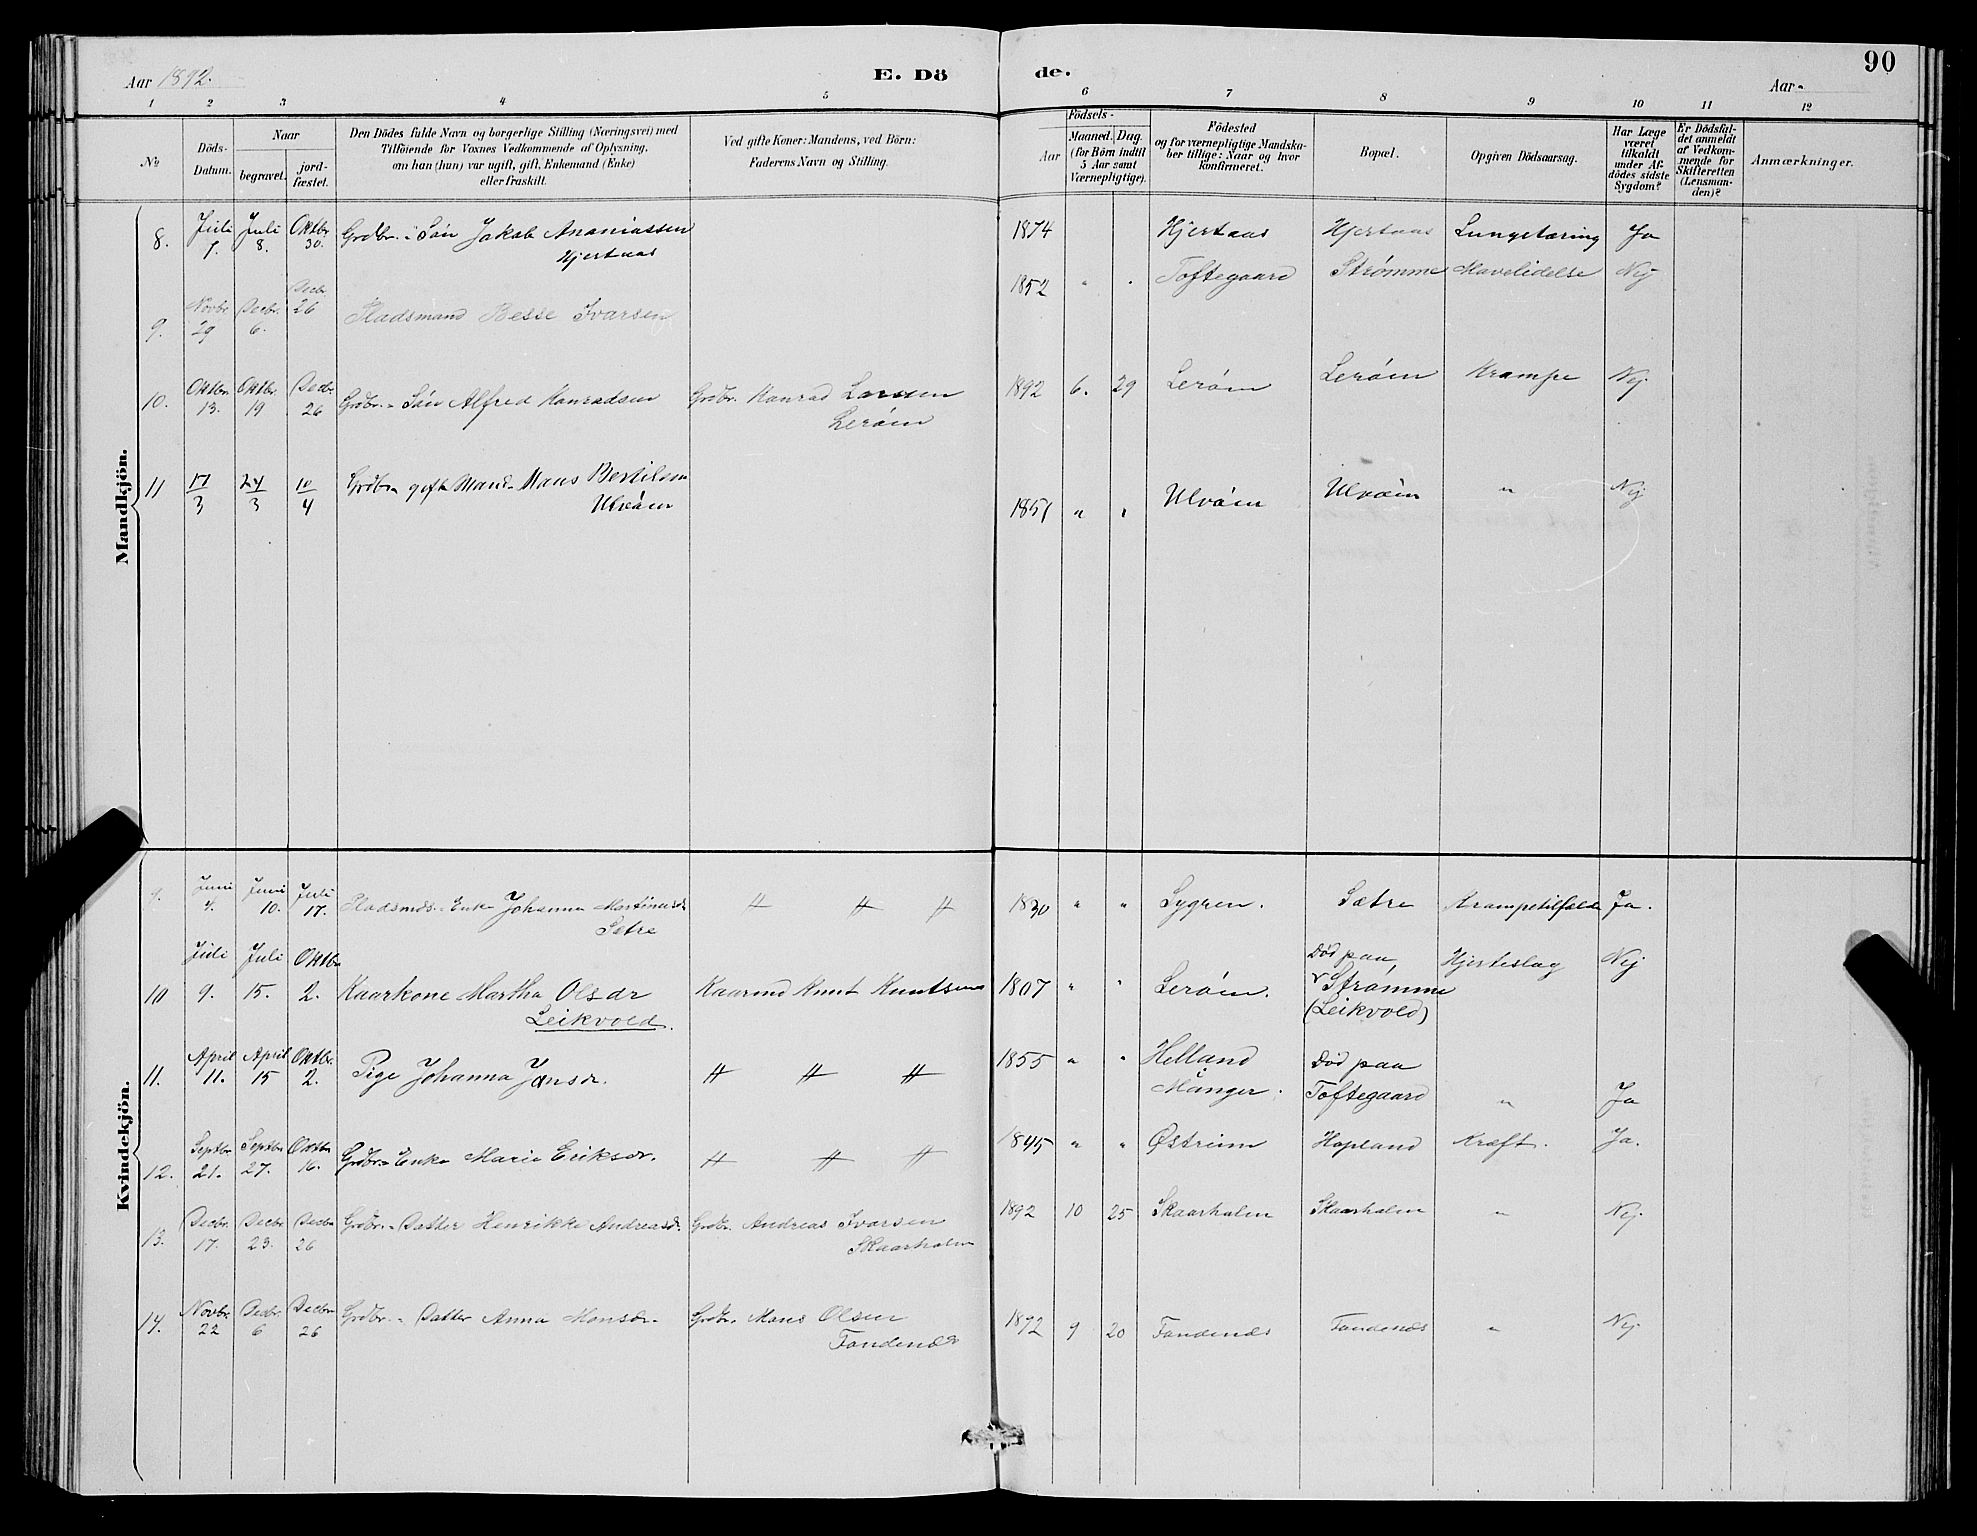 Aar 1892. E. Dö de. Aar 90
1 2 3 4 5 6 7 8 9 10 11 12
No
Döds-Datum.
Naar
begravet.
jord-fæstet.
Den Dödes fulde Navn og borgerlige Stilling (Næringsvei) med
Tilföiende for Voxnes Vedkommende af Oplysning,
om han (hun) var ugift, gift, Enkemand (Enke)
eller fraskilt.
Ved gifte Koner: Mandens, ved Börn:
Faderens Navn og Stilling.
Födsels-
Aar
Maaned. Dag.
(for Börn indtil
5 Aar samt
Værnepligtige).
Födested
og for værnepligtige Mandska-
ber tillige: Naar og hvor
konfirmeret.
Bopæl.
Opgiven Dödsaarsag.
Har Læge
været
tilkaldt
under Af-
dödes sidste
Sygdom?
Er Dödsfal-
det anmeldt
af Vedkom-
mende for
Skifteretten
(Lensman-
den)?
Anmærkninger.
Mandkjön.
8. Juli 1. Juli 8. Oktbr 30. Grdbr. Sön Jakob Ananiassen
Hjertaas
1874 Hjertaas Hjertaas Lungetæring Ja
9. Novbr 29 Decbr. 6. Decbr. 26 Pladsmand Besse Ivarsen
1852 " " Toftegaard Strømme Mavelidelse Nej
10. Oktbr. 13. Oktbr. 19 Decbr. 26 Grdbr. Sön Alfred Konradsen Grdbr. Konrad Larsen
Leröen
1892 6. 29 Leröen Leröen Krampe Nej
11 17/3 24/3 10/4 Grdbr gift Mand Mans Bertilsen
Ulvöen
1851 " " Ulvöen Ulvöen " Nej
Kvindekjön.
9. Juni 4. Juni 10. Juli 17. Pladsmds. Enke Johanna Martinusdr
Setre
1830 " " Sygren. Sætre Krampetilfælde Ja.
10 Juli 9. Juli 15. Oktbr 2. Kaarkone Martha Olsdr
Leikvold.
Kaarmd Knut Knutsen
1807 " " Leröen. Död paa
Strömme
(Leikvold)
Hjerteslag Nej
11. April 11. April 15 Oktbr. 2. Pige Johanna Jansdr.
1855 " " Helland
Manger.
Död paa
Toftegaard
" Ja
12. Septbr 21. Septbr 27. Oktbr 16. Grdbr. Enke Marie Eriksdr.
1845 " " Østreim Hopland Kræft. Ja.
13. Decbr. 17. Decbr 23. Decbr 26 Grdbr. Datter Henrikke Andreasdr. Grdbr. Andreas Ivarsen
Skaarholm
1892 10 25 Skaarholm Skaarholm " Nej
14. Novbr. 22 Decbr. 6 Decbr 26 Grdbr. Datter Anna Monsdr. Grdbr. Mons Olsen
Fondenæs
1892 9 20 Fondenæs Fondenæs " Nej